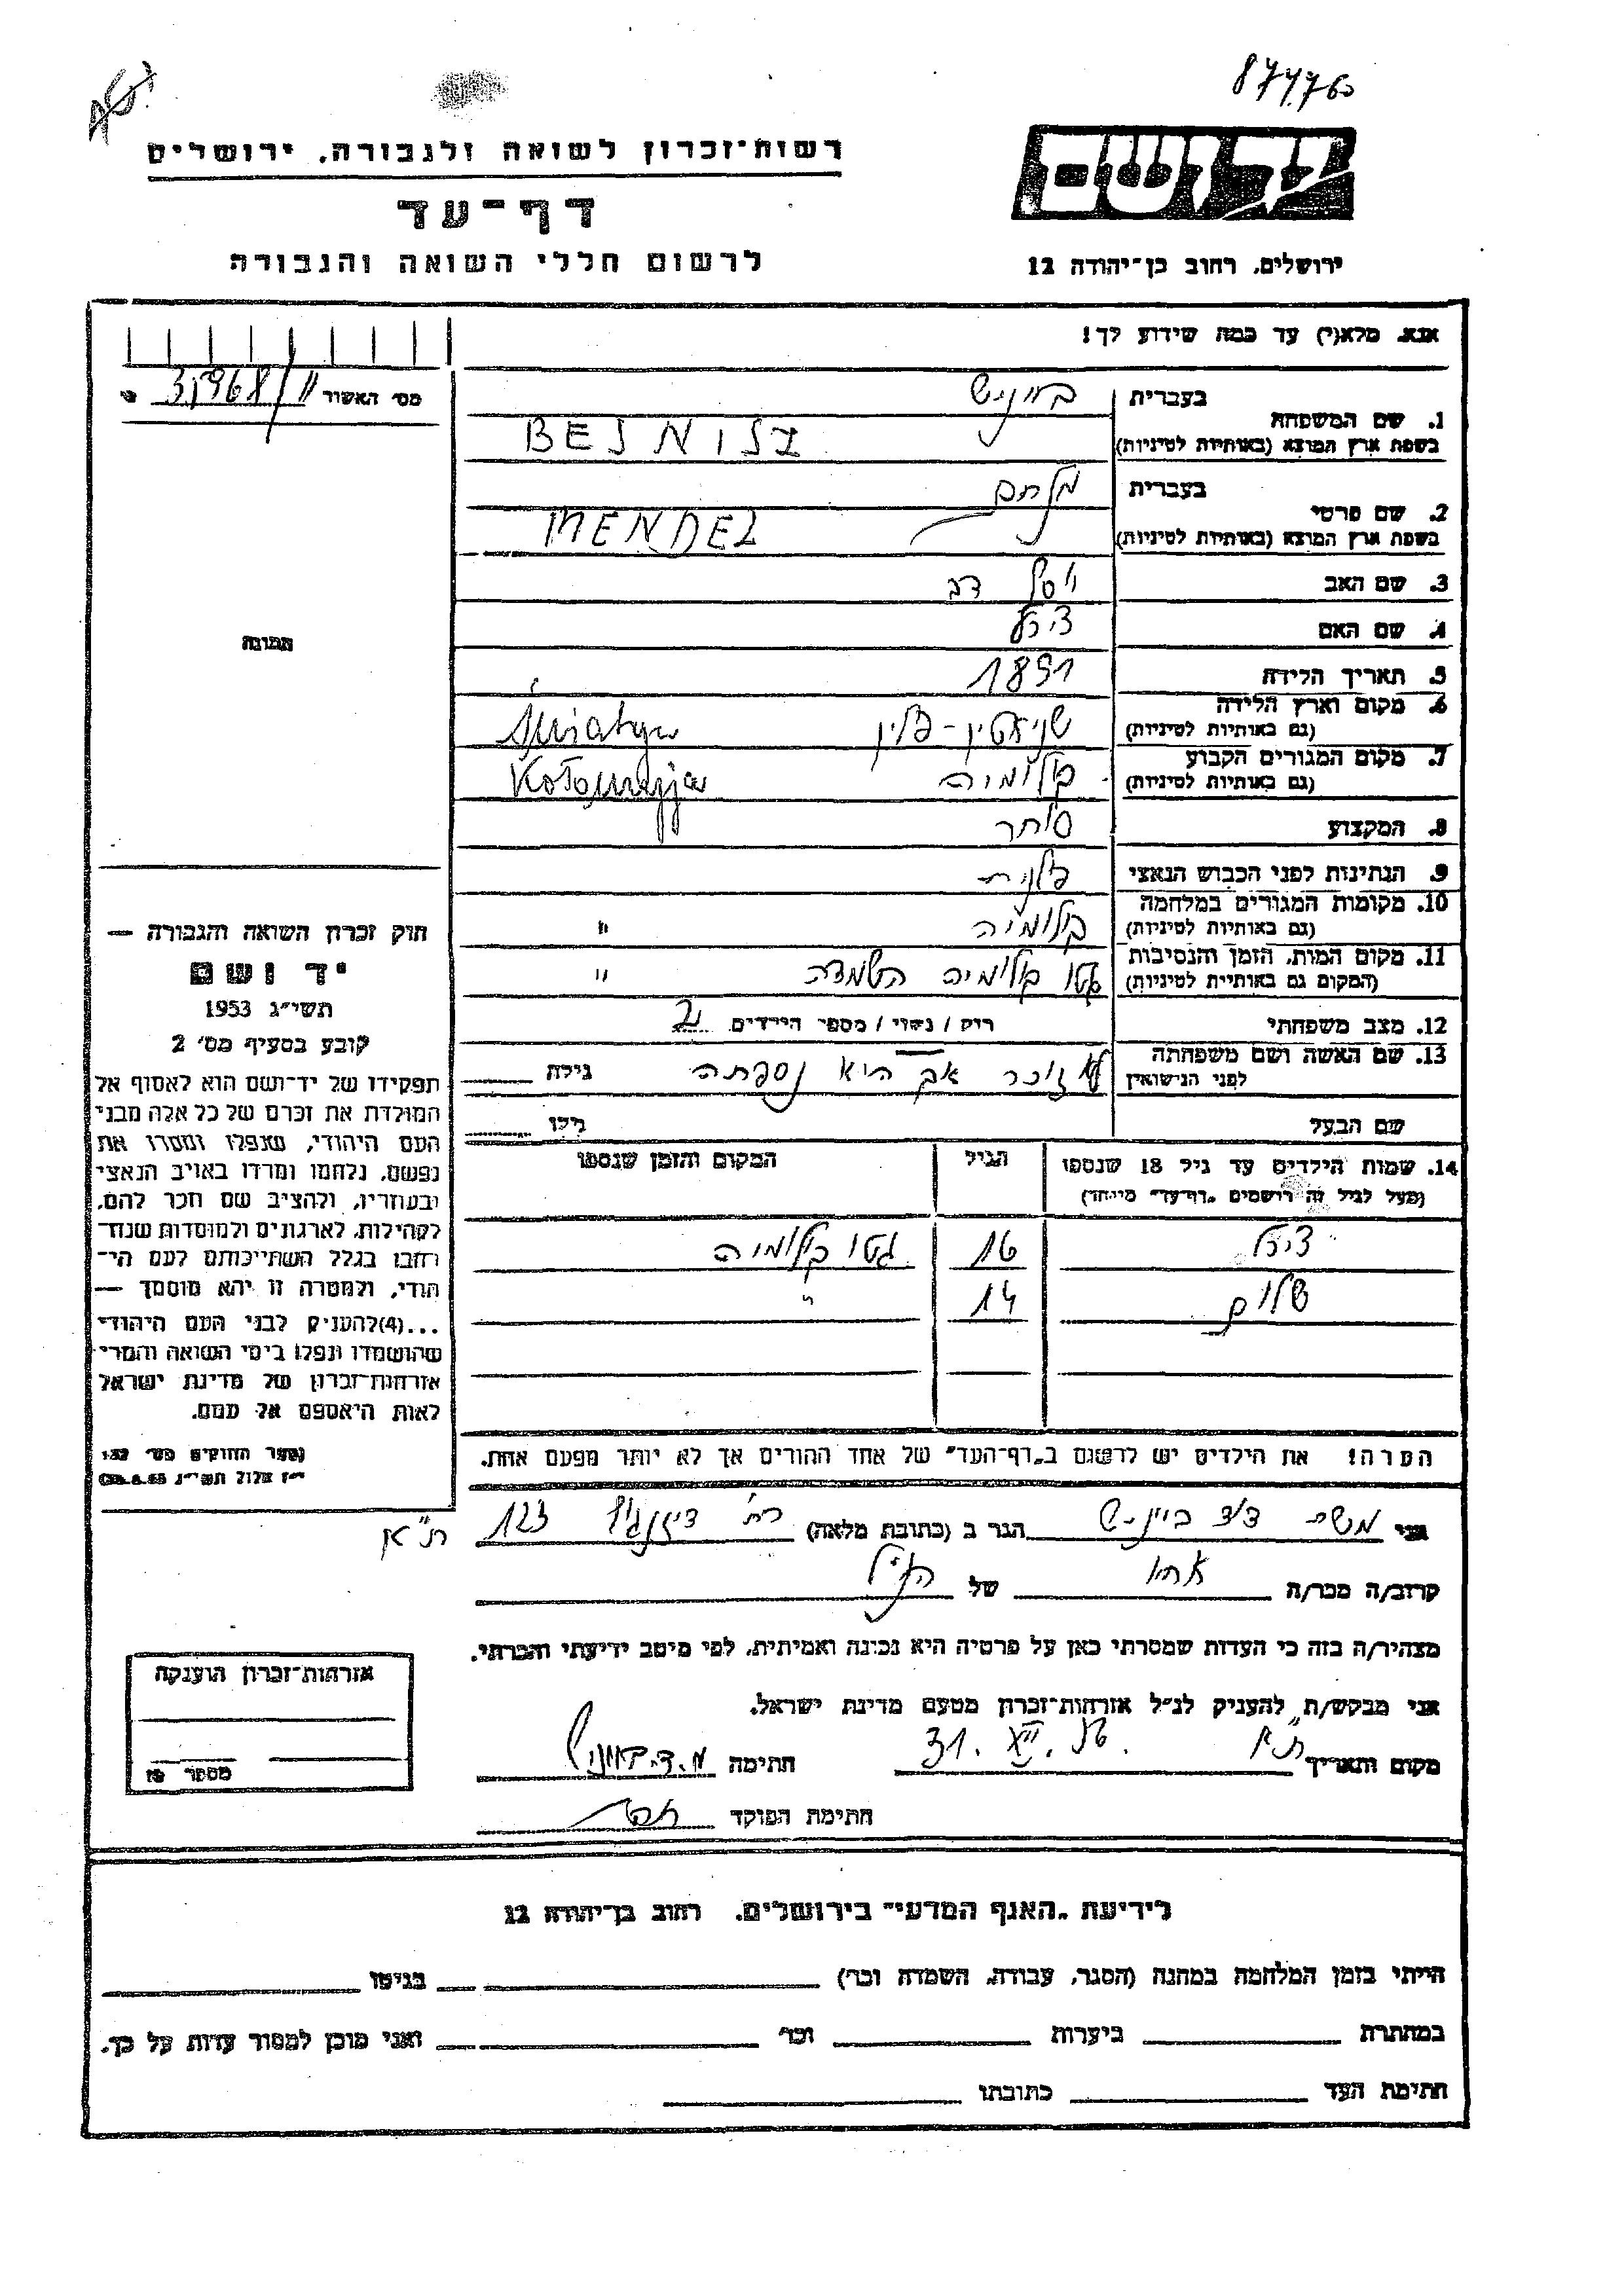 874760
רשות־זכרון לשואה ולגבורה, ירושלים
דף־עד
לרשום חללי השואה והגבורה
ירושלים, רחוב בן־יהודה 12
אנא, מלא(י) עד כמה שידוע לך!
מס׳ האשור
1. שם המשפחה
בעברית
בייניש
בשפת ארץ המוצא (באותיות לטיניות)
BEJNISZ
2. שם פרטי
בעברית
בשפת ארץ המוצא (באותיות לטיניות)
MENDEL
3. שם האב
יוסף דב
4. שם האם
5. תאריך הלידה
1891
6. מקום וארץ הלידה
(גם באותיות לטיניות)
שניאטין - פולין Śniatyn
7. מקום המגורים הקבוע
(גם באותיות לטיניות)
קולומיה Kołomyja
8. המקצוע
סוחר
9. הנתינות לפני הכבוש הנאצי
פולנית
10. מקומות המגורים במלחמה
(גם באותיות לטיניות)
קולומיה "
11. מקום המות, הזמן והנסיבות
(המקום גם באותיות לטיניות)
גטו קולומיה השמדה "
12. מצב משפחתי
רוק / נשוי / מספר הילדים 2
13. שם האשה ושם משפחתה
לפני הנישואין
לא זוכר אך היא נספתה
גילה
שם הבעל
גילו
14. שמות הילדים עד גיל 18 שנספו
(מעל לגיל זה רושמים „דף־עד" מיוחד)
הגיל
המקום והזמן שנספו
16 גטו קולומיה
שלום 14 "
הערה! את הילדים יש לרשום ב„דף־העד" של אחד ההורים אך לא יותר מפעם אחת.
תמונה
חוק זכרון השואה והגבורה —
יד ושם
תשי״ג 1953
קובע בסעיף מס׳ 2
תפקידו של יד־ושם הוא לאסוף אל
המולדת את זכרם של כל אלה מבני
העם היהודי, שנפלו ומסרו את
נפשם, נלחמו ומרדו באויב הנאצי
ובעוזריו, ולהציב שם וזכר להם,
לקהילות, לארגונים ולמוסדות שנח־
רבו בגלל השתייכותם לעם הי־
הודי, ולמטרה זו יהא מוסמך —
...(4)להעניק לבני העם היהודי
שהושמדו ונפלו בימי השואה והמרי
אזרחות־זכרון של מדינת ישראל
לאות היאספם אל עמם.
אני משה דוד בייניש הגר ב (כתובת מלאה) רח׳ דיזנגוף 123 ת״א
קרוב/ה מכר/ה אחיו של הנ״ל
מצהיר/ה בזה כי העדות שמסרתי כאן על פרטיה היא נכונה ואמיתית, לפי מיטב ידיעתי והכרתי.
אני מבקש/ת להעניק לנ״ל אזרחות־זכרון מטעם מדינת ישראל.
מקום ותאריך ת״א 31. XII. 56. חתימה מ.ד. בייניש
חתימת הפוקד
אזרחות־זכרון הוענקה
מספר
לידיעת „האגף המדעי" בירושלים, רחוב בן־יהודה 12
הייתי בזמן המלחמה במחנה (הסגר, עבודה, השמדה וכו׳) בגיטו
במחתרת ביערות וכו׳ ואני מוכן למסור עדות על כך.
חתימת העד כתובתו